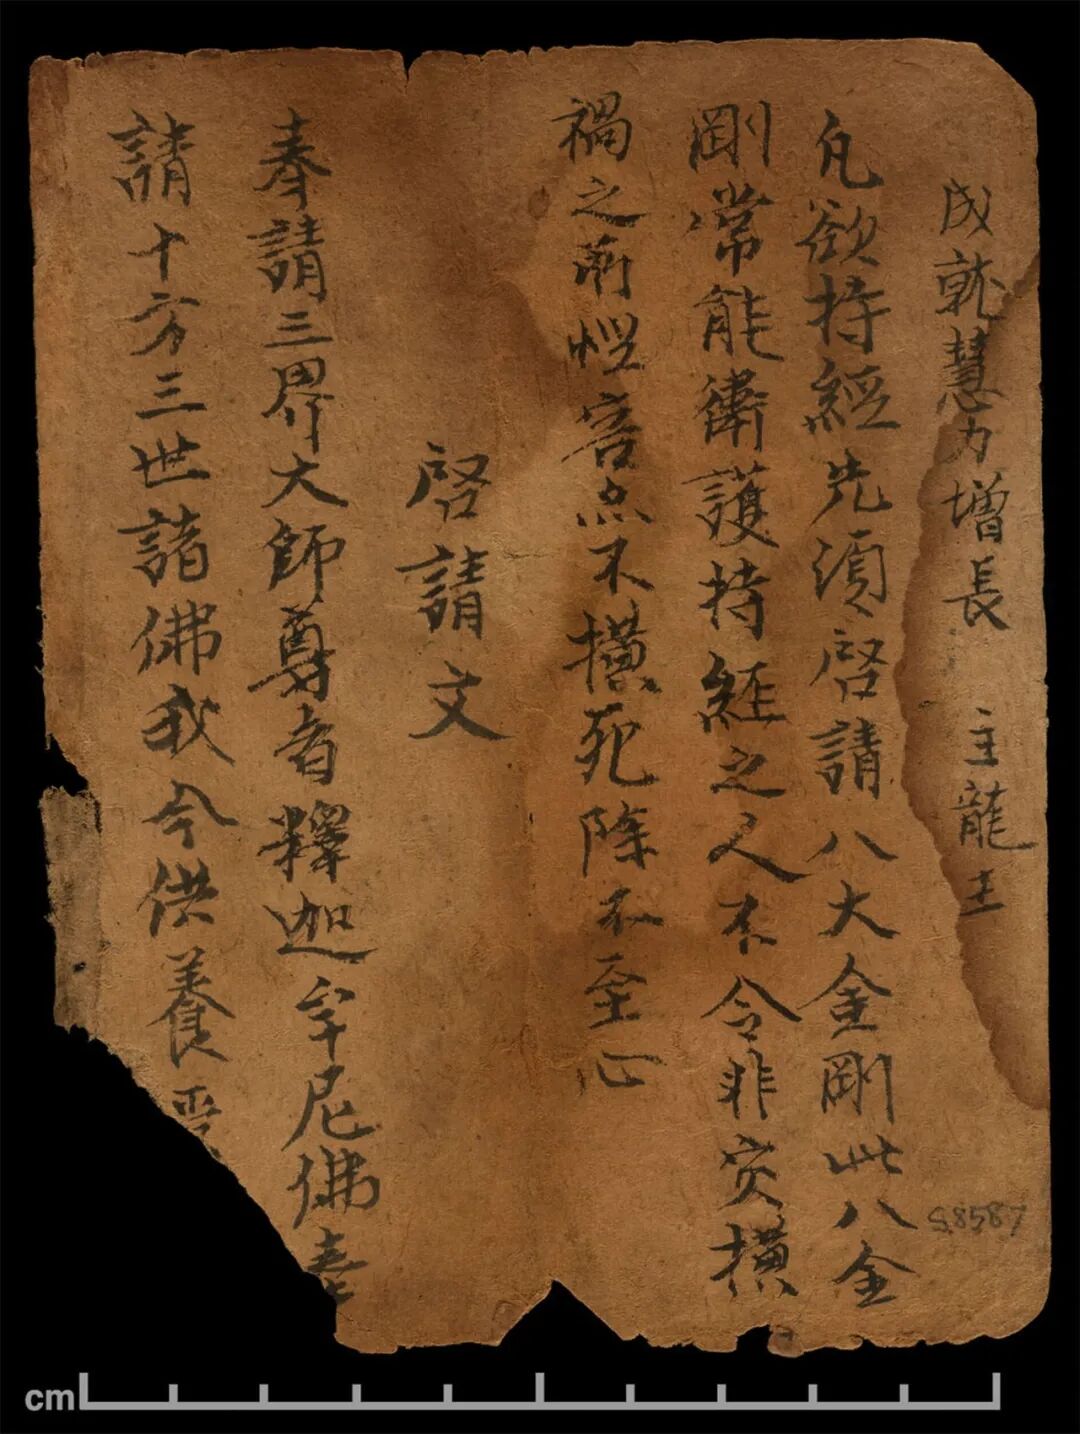 成就慧力增長 主龍王
凡欲持經先須啓請八大金剛此八金
剛常能衛護持經之人不令非灾橫
禍之所惱害亦不橫死除不至心
啓請文
奉請三界大師尊者釋迦牟尼佛奉
請十方三世諸佛我今供養
S.8587
cm